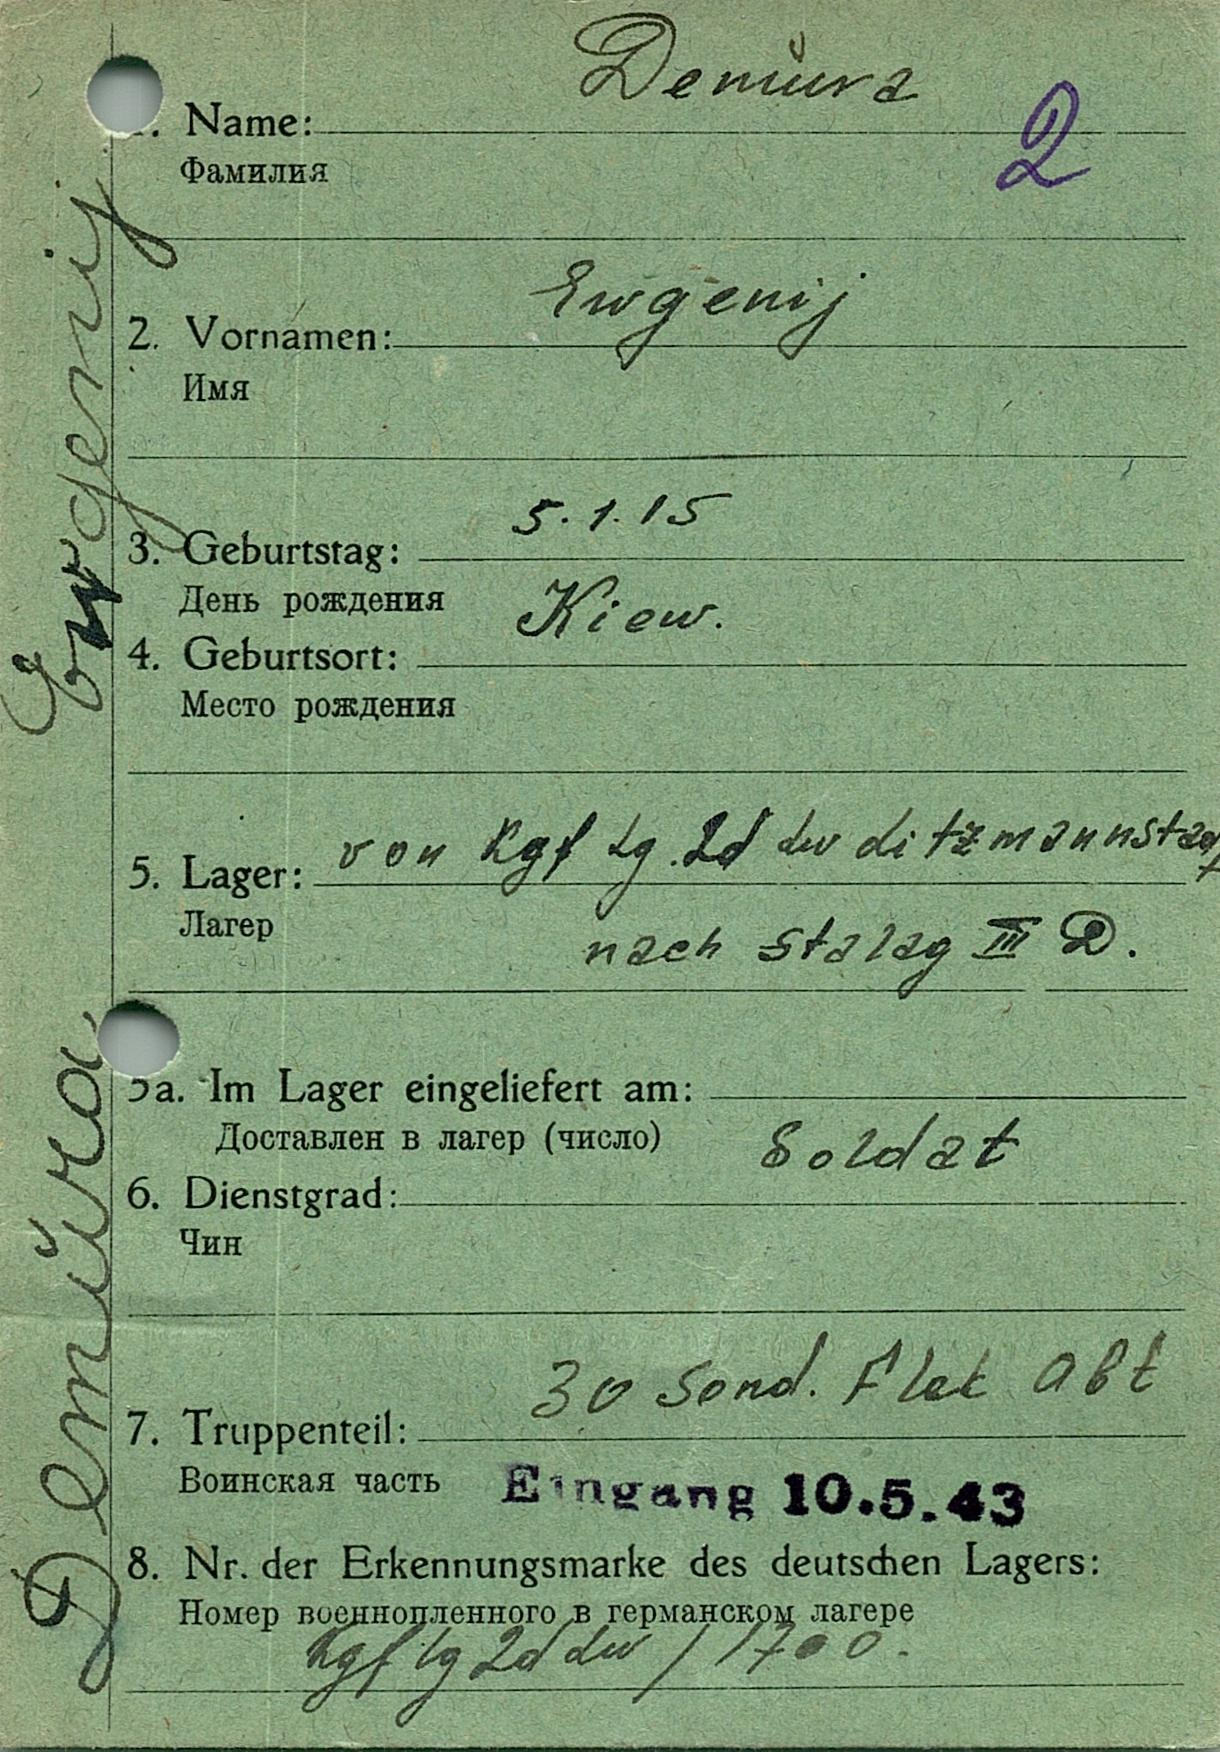 Demiura
2
1. Name:
Фамилия
Ewgenij
2. Vornamen:
Имя
5.1.15
3. Geburtstag:
День рождения
Kiew.
4. Geburtsort:
Место рождения
von Kgf Lg. 2d Lw Litzmannstadt
5. Lager:
Лагер
nach Stalag III D.
5a. Im Lager eingeliefert am:
Доставлен в лагер (число)
Soldat
6. Dienstgrad:
Чин
30 Sond. Flak Abt
7. Truppenteil:
Воинская часть
Eingang 10.5.43
8. Nr. der Erkennungsmarke des deutschen Lagers:
Номер военнопленного в германском лагере
Kgf Lg 2d Lw / 1700.
Demiura, Ewgenij